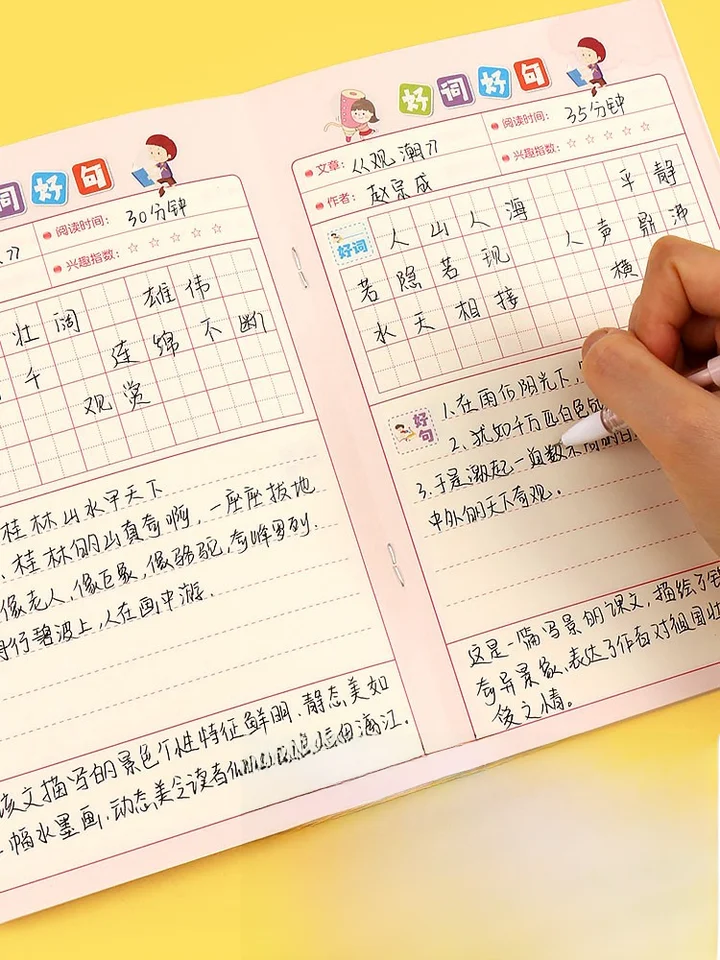 词好句
阅读时间: 30分钟
兴趣指数: ☆☆☆☆☆
壮阔 雄伟
千 连绵不断
观赏
桂林山水甲天下
桂林的山真奇啊,一座座拔地
像老人,像巨象,像骆驼,奇峰罗列.
舟行碧波上,人在画中游.
该文描写的景色个性特征鲜明.静态美如
一幅水墨画.动态美令读者似漓江.
好词好句
文章: 《观潮》
阅读时间: 35分钟
作者: 赵宗成
兴趣指数: ☆☆☆☆☆
好词
人山人海 平静
若隐若现 人声鼎沸
水天相接 横
好句
1.在雨后阳光下,
2.犹如千万匹白色
3.于是激起一道
中外的天下奇观.
这是一篇写景的课文,描绘了钱
奇异景象,表达了作者对祖国壮
俊之情。